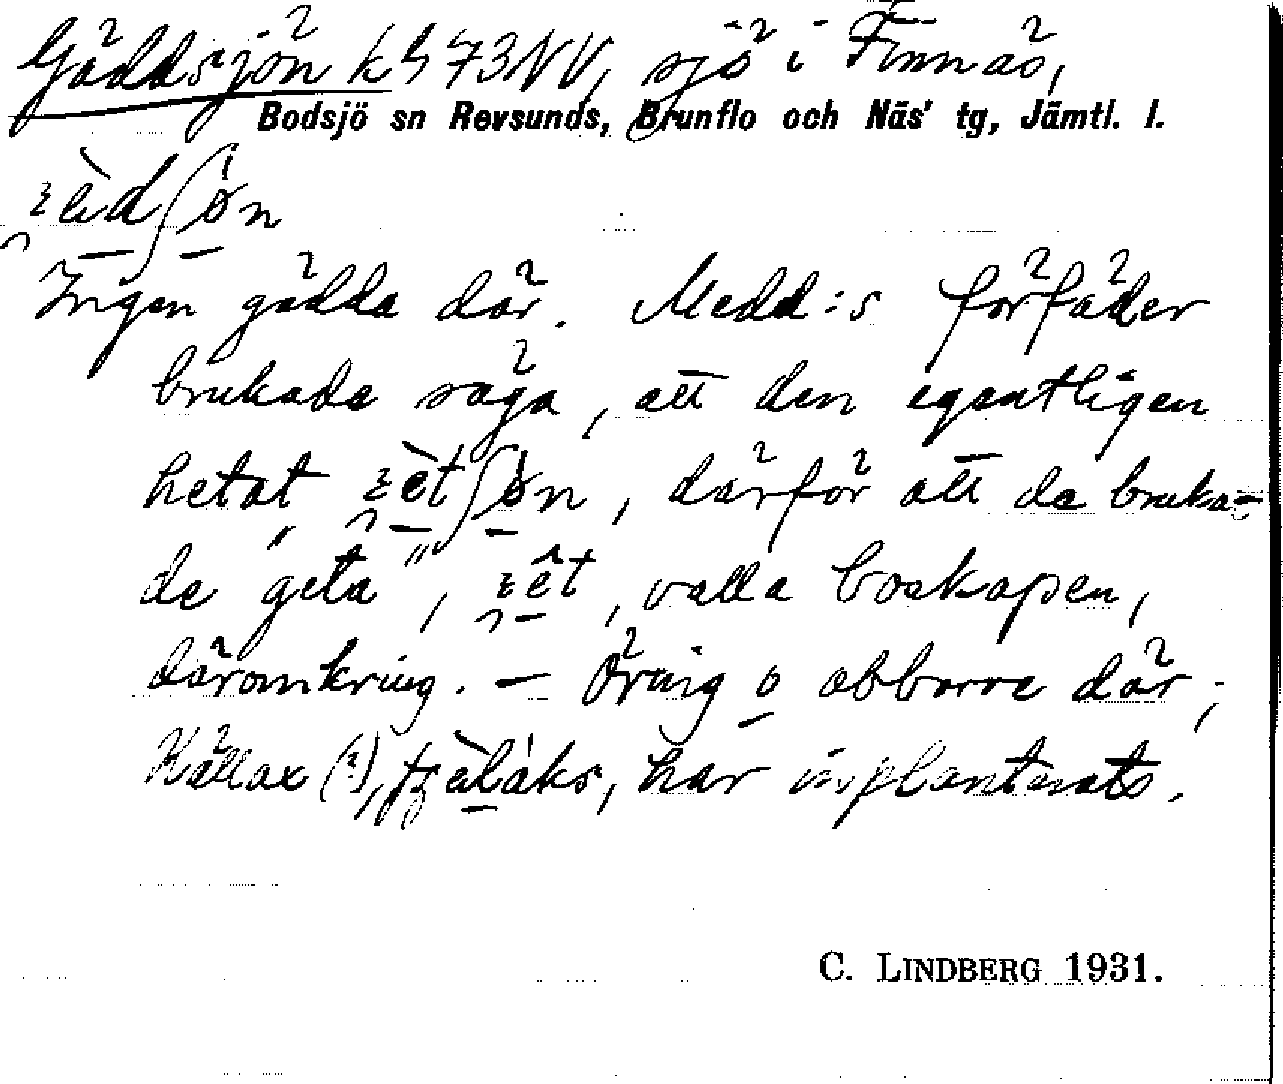 Gäddsjön kh 73NV, sjö i Finnäs,
Bodsjö sn Revsunds, Brunflo och Näs' tg, Jämtl. l.
Ingen gädda där. Medd:s förfäder
brukade säga, att den egentligen
hetat, därför att de bruka-
de "geta", valla boskapen,
däromkring. — Öring o abborre där;
Källax (?), har inplanterats.
C. LINDBERG 1931.